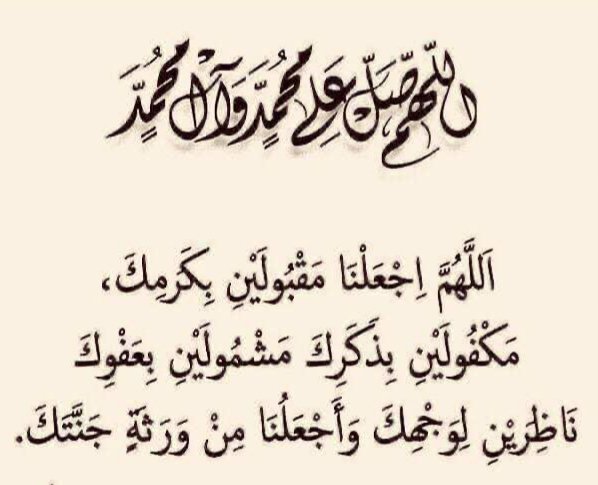 اللّهم صَلّ عَلى محُمدٍ وَآل محُمدٍ
اَللَّهُمَّ اِجْعَلْنَا مَقْبُولَيْنِ بِكَرَمِكَ،
مَكْفُولَيْنِ بِذَكَرِكَ مَشْمُولَيْنِ بِعَفْوِكَ
نَاظِرَيْنِ لِوَجْهِكَ وَأَجْعَلُنَا مِنْ وَرَثَةٍ جَنَّتَكَ.